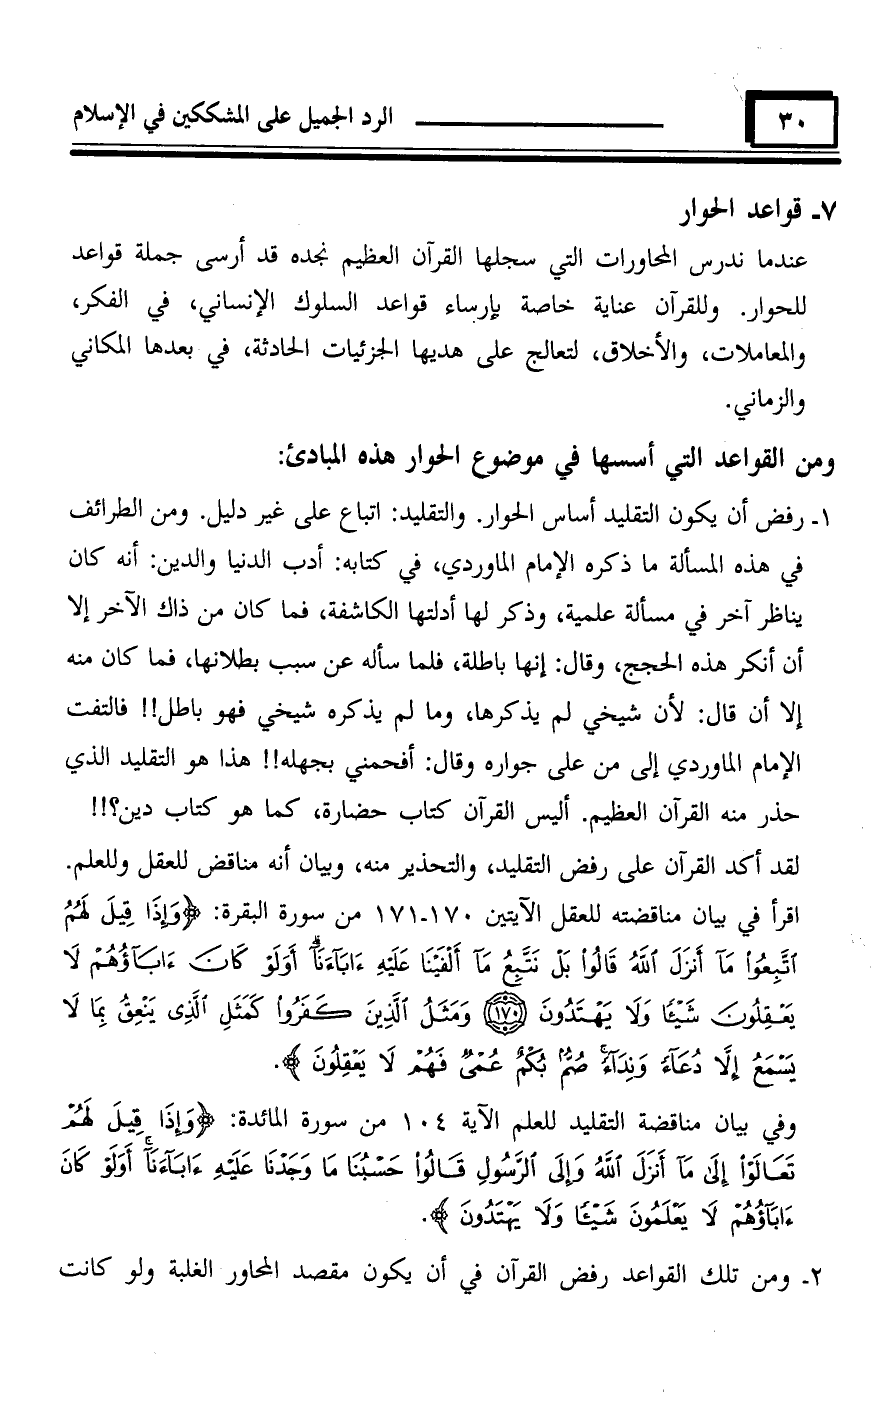 ٣٠ الرد الجميل على المشككين في الإسلام
٧ـ قواعد الحوار
عندما ندرس المحاورات التي سجلها القرآن العظيم نجده قد أرسى جملة قواعد
للحوار. وللقرآن عناية خاصة بإرساء قواعد السلوك الإنساني، في الفكر،
والمعاملات، والأخلاق، لتعالج على هديها الجزئيات الحادثة، في بعدها المكاني
والزماني.
ومن القواعد التي أسسها في موضوع الحوار هذه المبادئ:
١ـ رفض أن يكون التقليد أساس الحوار. والتقليد: اتباع على غير دليل. ومن الطرائف
في هذه المسألة ما ذكره الإمام الماوردي، في كتابه: أدب الدنيا والدين: أنه كان
يناظر آخر في مسألة علمية، وذكر لها أدلتها الكاشفة، فما كان من ذاك الآخر إلا
أن أنكر هذه الحجج، وقال: إنها باطلة، فلما سأله عن سبب بطلانها، فما كان منه
إلا أن قال: لأن شيخي لم يذكرها، وما لم يذكره شيخي فهو باطل!! فالتفت
الإمام الماوردي إلى من على جواره وقال: أفحمني بجهله!! هذا هو التقليد الذي
حذر منه القرآن العظيم. أليس القرآن كتاب حضارة، كما هو كتاب دين؟!!
لقد أكد القرآن على رفض التقليد، والتحذير منه، وبيان أنه مناقض للعقل وللعلم.
اقرأ في بيان مناقضته للعقل الآيتين ١٧٠ـ١٧١ من سورة البقرة: ﴿وَإِذَا قِيلَ لَهُمُ
ٱتَّبِعُوا۟ مَآ أَنزَلَ ٱللَّهُ قَالُوا۟ بَلْ نَتَّبِعُ مَآ أَلْفَيْنَا عَلَيْهِ ءَابَآءَنَآ ۗ أَوَلَوْ كَانَ ءَابَآؤُهُمْ لَا
يَعْقِلُونَ شَيْـًٔا وَلَا يَهْتَدُونَ ۝١٧٠ وَمَثَلُ ٱلَّذِينَ كَفَرُوا۟ كَمَثَلِ ٱلَّذِى يَنْعِقُ بِمَا لَا
يَسْمَعُ إِلَّا دُعَآءً وَنِدَآءً ۚ صُمٌّۢ بُكْمٌ عُمْىٌ فَهُمْ لَا يَعْقِلُونَ﴾.
وفي بيان مناقضة التقليد للعلم الآية ١٠٤ من سورة المائدة: ﴿وَإِذَا قِيلَ لَهُمْ
تَعَالَوْا۟ إِلَىٰ مَآ أَنزَلَ ٱللَّهُ وَإِلَى ٱلرَّسُولِ قَالُوا۟ حَسْبُنَا مَا وَجَدْنَا عَلَيْهِ ءَابَآءَنَآ ۚ أَوَلَوْ كَانَ
ءَابَآؤُهُمْ لَا يَعْلَمُونَ شَيْـًٔا وَلَا يَهْتَدُونَ﴾.
٢ـ ومن تلك القواعد رفض القرآن في أن يكون مقصد المحاور الغلبة ولو كانت